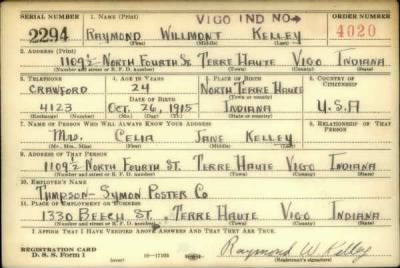 SERIAL NUMBER 1. NAME (Print) VIGO IND NO→ ORDER NUMBER
2294 RAYMOND WILLMONT KELLEY 4020
(First) (Middle) (Last)
2. ADDRESS (Print)
1109½ NORTH FOURTH ST. TERRE HAUTE VIGO INDIANA
(Number and street or R. F. D. number) (Town) (County) (State)
3. TELEPHONE 4. AGE IN YEARS 5. PLACE OF BIRTH 6. COUNTRY OF CITIZENSHIP
CRAWFORD 24 NORTH TERRE HAUTE
(Town or county)
DATE OF BIRTH
4123 OCT. 26, 1915 INDIANA U.S.A
(Exchange) (Number) (Mo.) (Day) (Yr.) (State or country)
7. NAME OF PERSON WHO WILL ALWAYS KNOW YOUR ADDRESS 8. RELATIONSHIP OF THAT PERSON
MRS. CELIA JANE KELLEY
(Mr., Mrs., Miss) (First) (Middle) (Last)
9. ADDRESS OF THAT PERSON
1109½ NORTH FOURTH ST. TERRE HAUTE VIGO INDIANA
(Number and street or R. F. D. number) (Town) (County) (State)
10. EMPLOYER'S NAME
THMPSON-SYMON POSTER CO
11. PLACE OF EMPLOYMENT OR BUSINESS
1330 BEECH ST. TERRE HAUTE VIGO INDIANA
(Number and street or R. F. D. number) (Town) (County) (State)
I AFFIRM THAT I HAVE VERIFIED ABOVE ANSWERS AND THAT THEY ARE TRUE.
REGISTRATION CARD
D. S. S. Form 1 (over) 16—17105 Raymond W. Kelley
(Registrant's signature)